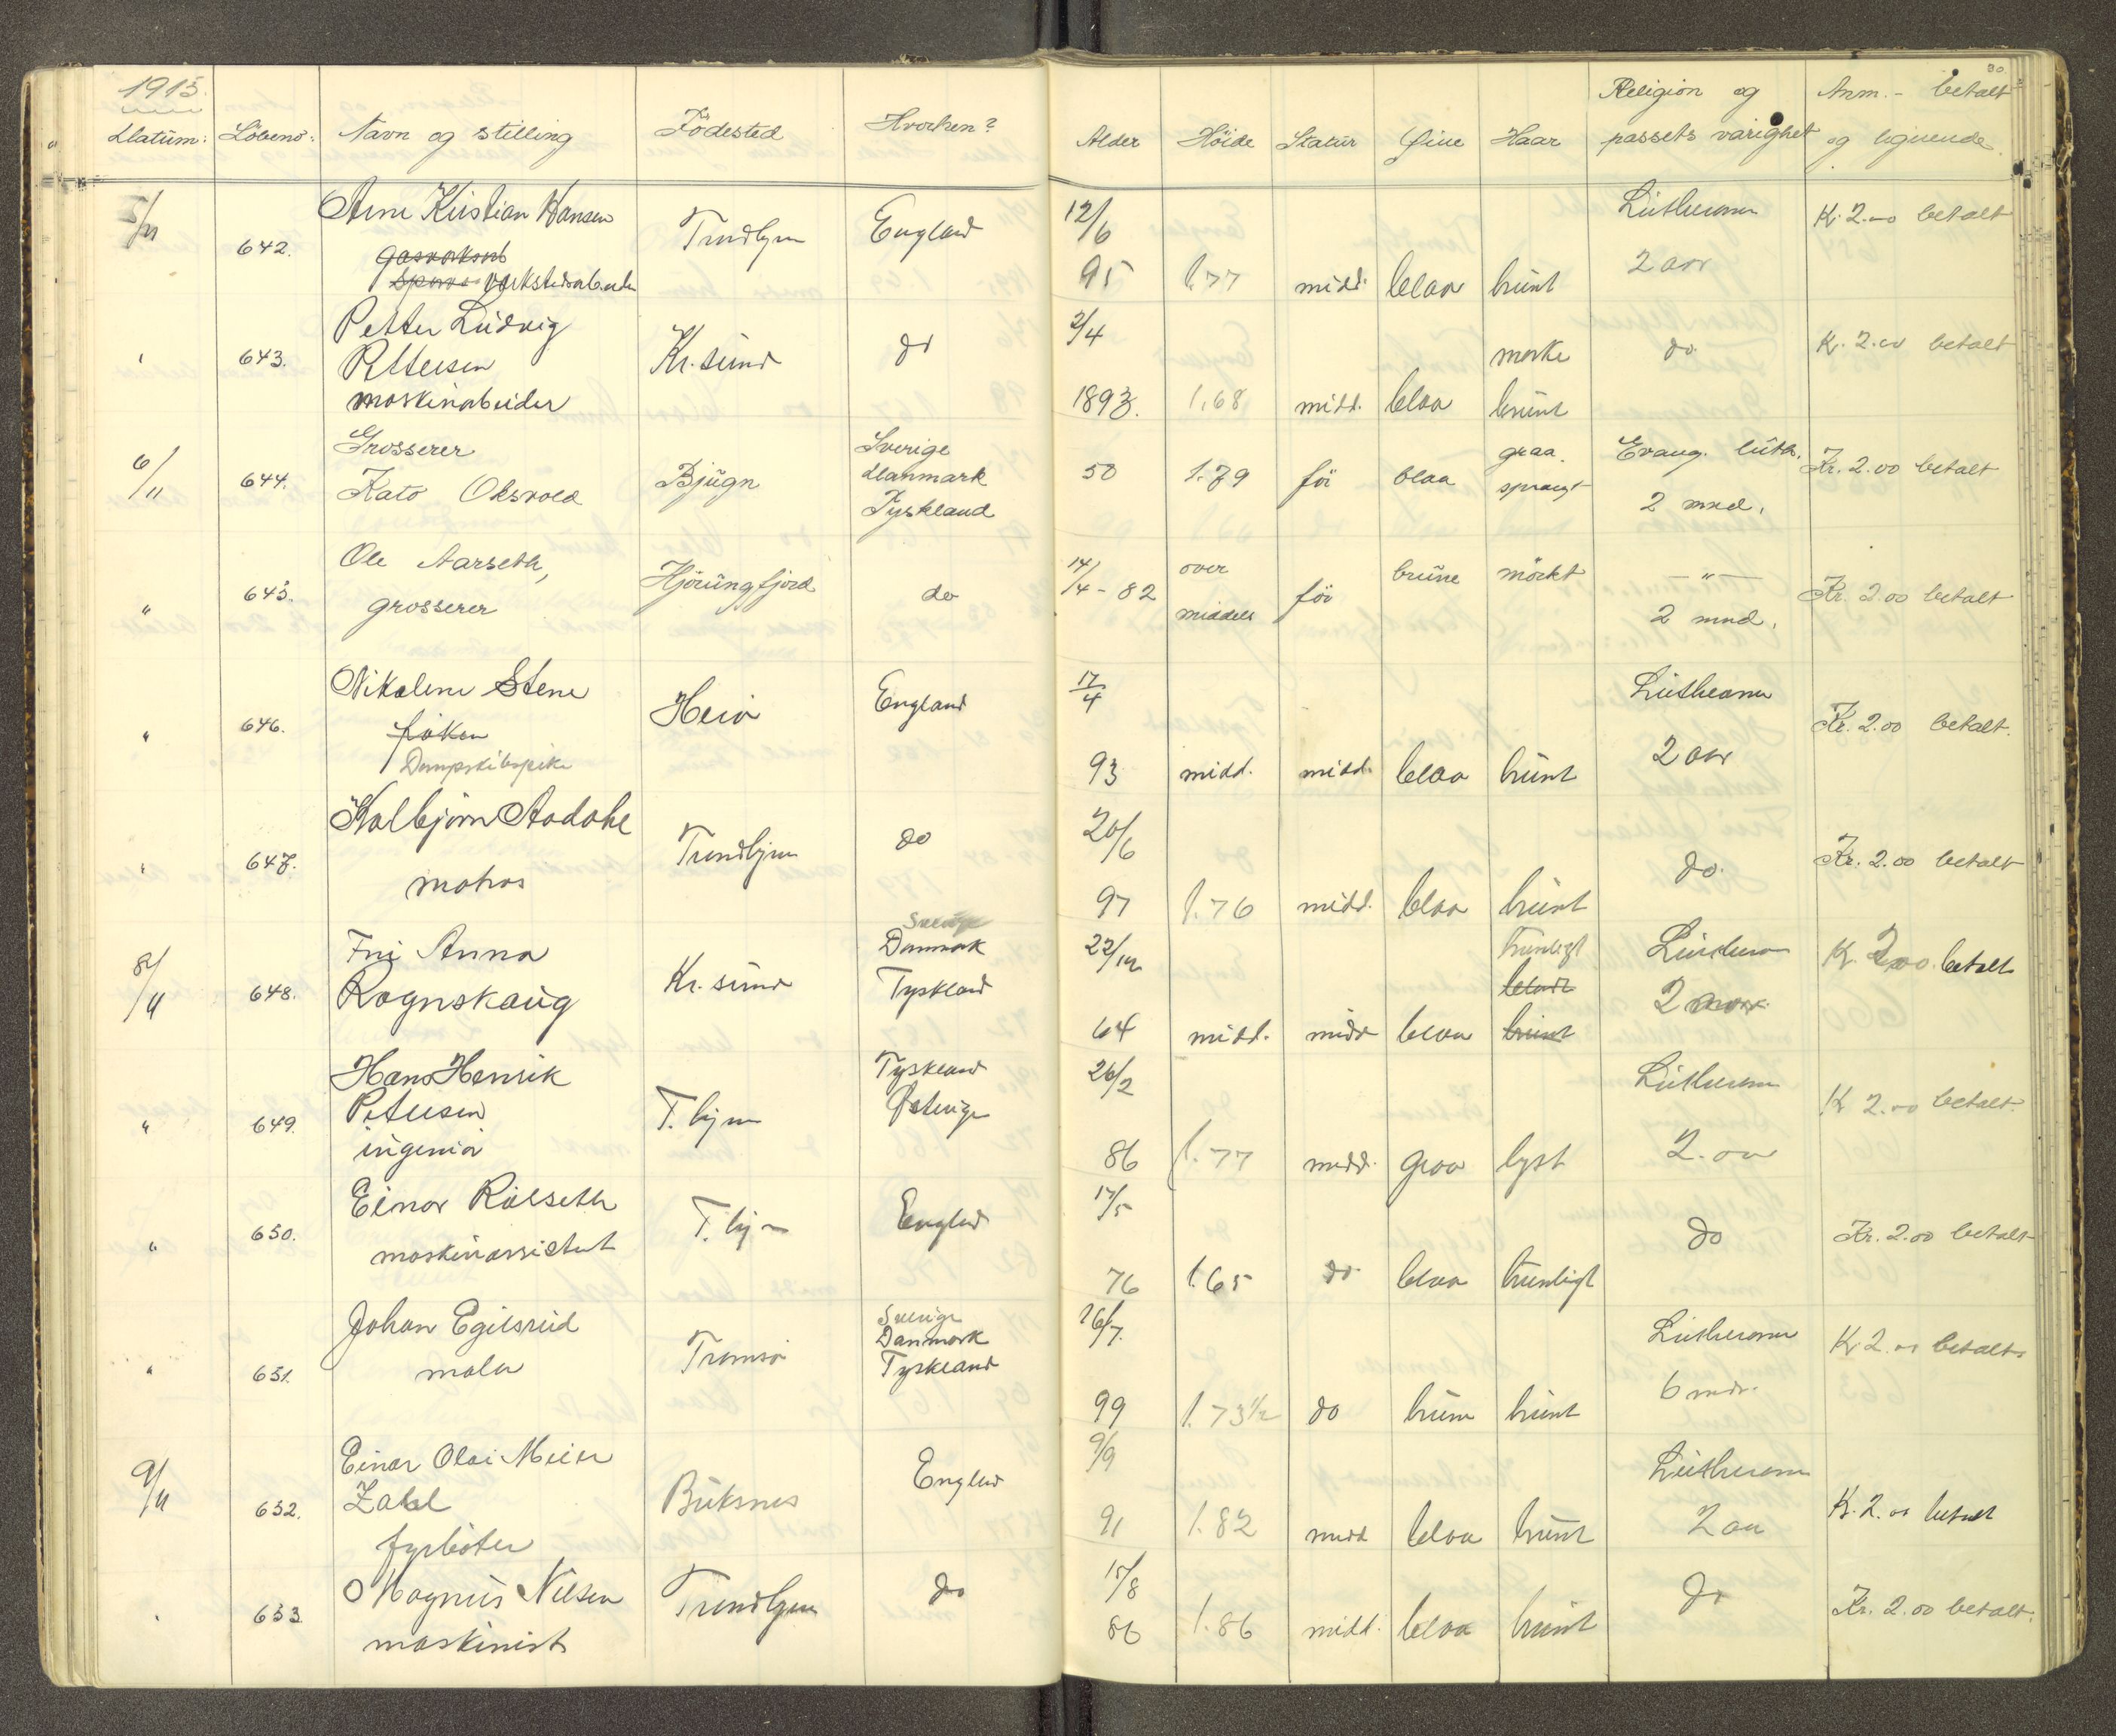 30.
1915.
Datum: Löbeno: Navn og stilling Födested Hvorhen? Alder Höide Statur Øine Haar Religion og passets varighet Anm. - betalt og lignende.
5/11 642. Arne Kristian Hansen Trndhjm England 12/6 95 1.77 midd. blaa brunt Lutheraner 2 aar K. 2.00 betalt
verkstedsarbeider
" 643. Petter Ludvig Kr.sund do 2/4 1893. 1.68 midd. blaa mørke brunt do. K. 2.00 betalt
Pettersen
maskinarbeider
6/11 644. Grosserer Bjugn Sverige 50 1.79 för blaa graa. sprængt Evang. luth. 2 mnd. Kr. 2.00 betalt
Kato Oksvold Danmark
Tyskland
" 645. Ole Aarseth, Hjörungfjord do 14/4 - 82 over middels för brune mörkt — " — 2 mnd. Kr. 2.00 betalt
grosserer
" 646. Nikoline Stene England 17/4 93 midd. midd. blaa brunt Lutheraner 2 aar Kr. 2.00 betalt.
frøken
Dampskibspike
" 647. Kolbjørn Trondhjem do 20/6 97 1.76 midd. blaa brunt do. Kr. 2.00 betalt
matros
8/11 648. Fru Anna Kr.sund Sverige 22/12 64 midd. midd blaa brunligt Lutheran 2 K. 2.00 betalt
Rognskaug Danmark
Tyskland
" 649. Hans Henrik T.hjm Tyskland 26/2 86 1.77 midd. graa lyst Lutheraner 2 aar K 2.00 betalt.
Petersen Østerige
ingeniør
" 650. Einar Rølseth T.hjm England 17/5 76 1.65 do. blaa brunligt do Kr. 2.00 betalt
maskinassistent
" 651. Johan Egilsrud Tromsø Sverige 26/7. 99 1.73 1/2 do brune brunt Lutheraner 6 mdr. K 2.00 betalt
maler Danmark
Tyskland
9/11 652. Einar Olai Meier Buksnes England 9/9 91 1.82 midd blaa brunt Lutheraner 2 aar K. 2.00 betalt
Zahl
fyrbøter
" 653. O Magnus Nilsen Trondhjem do 15/8 86 1.86 midd. blaa brunt do Kr. 2.00 betalt.
maskinist